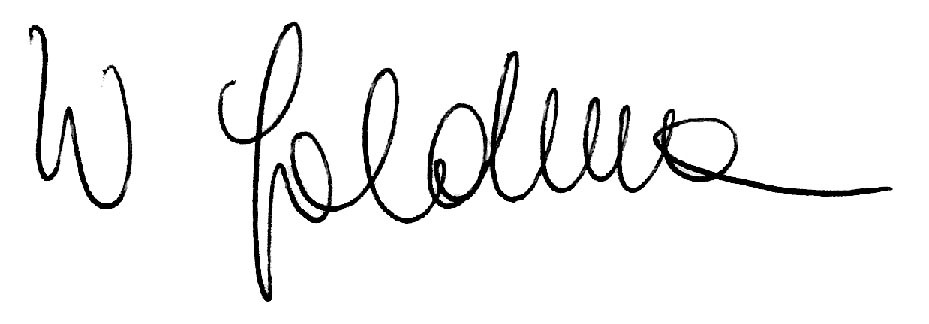 W Goldman